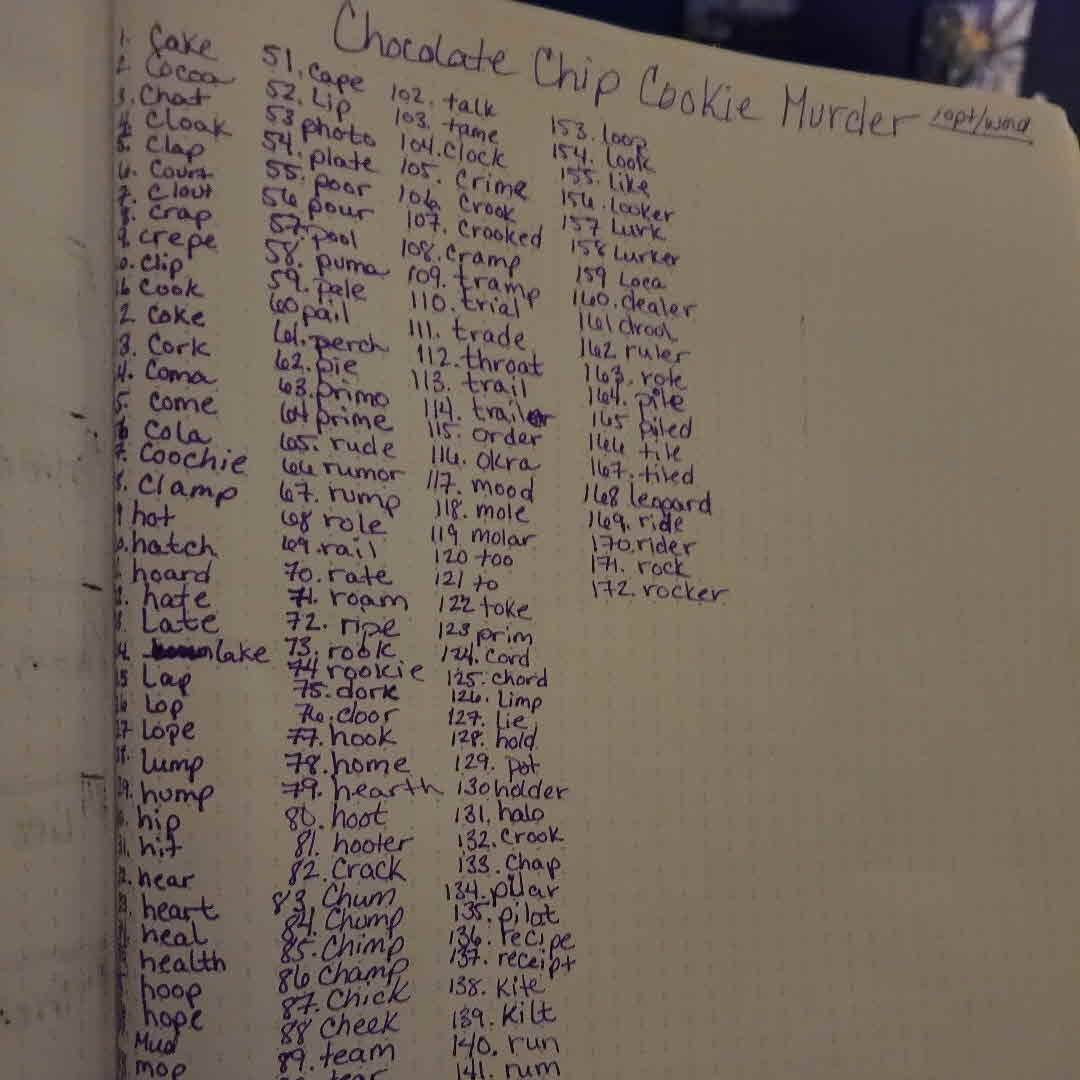 Chocolate Chip Cookie Murder 1opt/word
1. Cake
2. Cocoa
3. Chat
4. Cloak
5. Clap
6. Court
7. Clout
8. Crap
9. crepe
0. Clip
Cook
2. Coke
3. Cork
4. Coma
5. come
6. Cola
7. Coochie
8. Clamp
9 hot
0. hatch
hoard
hate
Late
4. lake
5 Lap
6 Lop
27 Lope
28. Lump
29. hump
hip
31. hit
hear
heart
heal
health
hoop
hope
Mud
mop
51. Cape
52. Lip
53 photo
54. plate
55. poor
56 pour
57. pool
58. puma
59. pale
60 pail
61. perch
62. pie
63. primo
64 prime
65. rude
66 rumor
67. rump
68 role
69. rail
70. rate
71. roam
72. ripe
73. rook
74 rookie
75. dork
76. door
77. hook
78. home
79. hearth
80. hoot
81. hooter
82. Crack
83. Chum
84. Chomp
85. Chimp
86 Champ
87. Chick
88 cheek
89. team
tear
102. talk
103. tame
104. Clock
105. Crime
106. Crook
107. Crooked
108. Cramp
109. tramp
110. trial
111. trade
112. throat
113. trail
114. trailer
115. order
116. okra
117. mood
118. mole
119 molar
120 too
121 to
122 toke
123 prim
124. Cord
125. chord
126. Limp
127. Lie
128. hold
129. pot
130 holder
131. halo
132. Crook
133. Chap
134. pilar
135. pilot
136. recipe
137. receipt
138. Kite
139. Kilt
140. run
141. rum
153. loop
154. look
155. like
156. looker
157 Lurk
158 Lurker
159 Loca
160. dealer
161 drool
162 ruler
163. rote
164. pile
165 piled
166 tile
167. tiled
168 leopard
169. ride
170. rider
171. rock
172. rocker